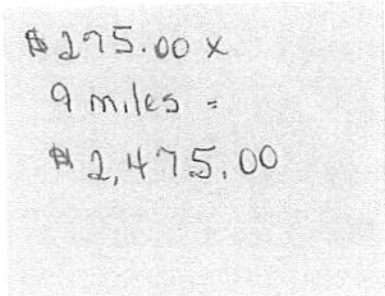 $275.00 x
9 miles =
$2,475.00